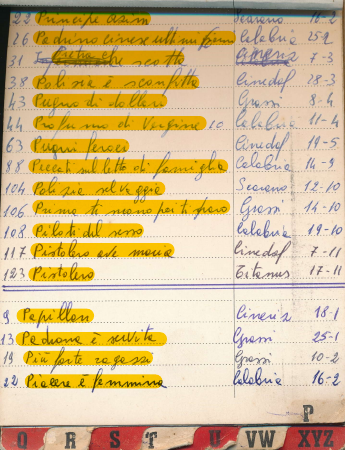 23 Principe azim Scarano 16-2
26 Padrino cinese Calabria 25-2
31 scotta Cineriz 7-3
38 Polizia è sconfitta Cinedaf 28-3
43 Pugno di dollari Grassi 8-4
44 Profumo di Vergine 10 Calabria 11-4
63 Pugni feroci Cinedaf 19-5
88 Peccati sul letto di famiglia Calabria 14-9
104 Polizia selvaggia Scarano 12-10
106 Prima ti suono poi ti sparo Grassi 14-10
108 Pilota del sesso Calabria 19-10
117 Pistolero ave maria Cinedaf 7-11
123 Pistolero Titanus 17-11
9 Papillon Cineriz 18-1
13 Padrona è servita Grassi 25-1
19 Più forte ragazzi Grassi 10-2
22 Piacere è femmina Calabria 16-2
P
Q R S T U VW XYZ